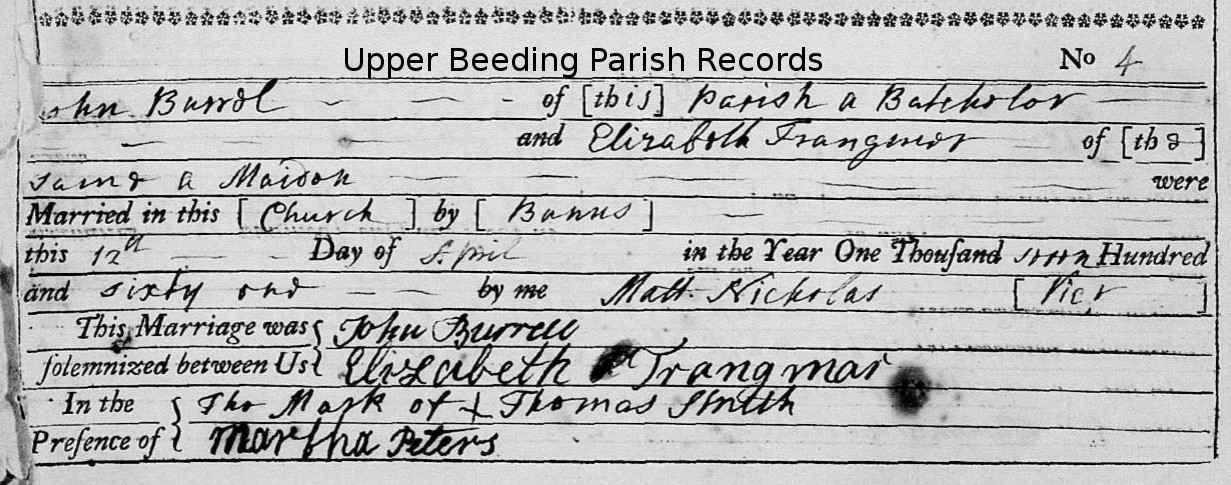 Upper Beeding Parish Records
No 4
John Burrol of [this] Parish a Batchelor
and Elizabeth Trangmer of [the]
same a Maiden were
Married in this [Church] by [Banns]
this 12th Day of April in the Year One Thouſand seven Hundred
and sixty one by me Matt. Nicholas [Vicr]
This Marriage was John Burrell
ſolemnized between Us Elizabeth Trangmar
In the The Mark of + Thomas Smith
Preſence of Martha Peters